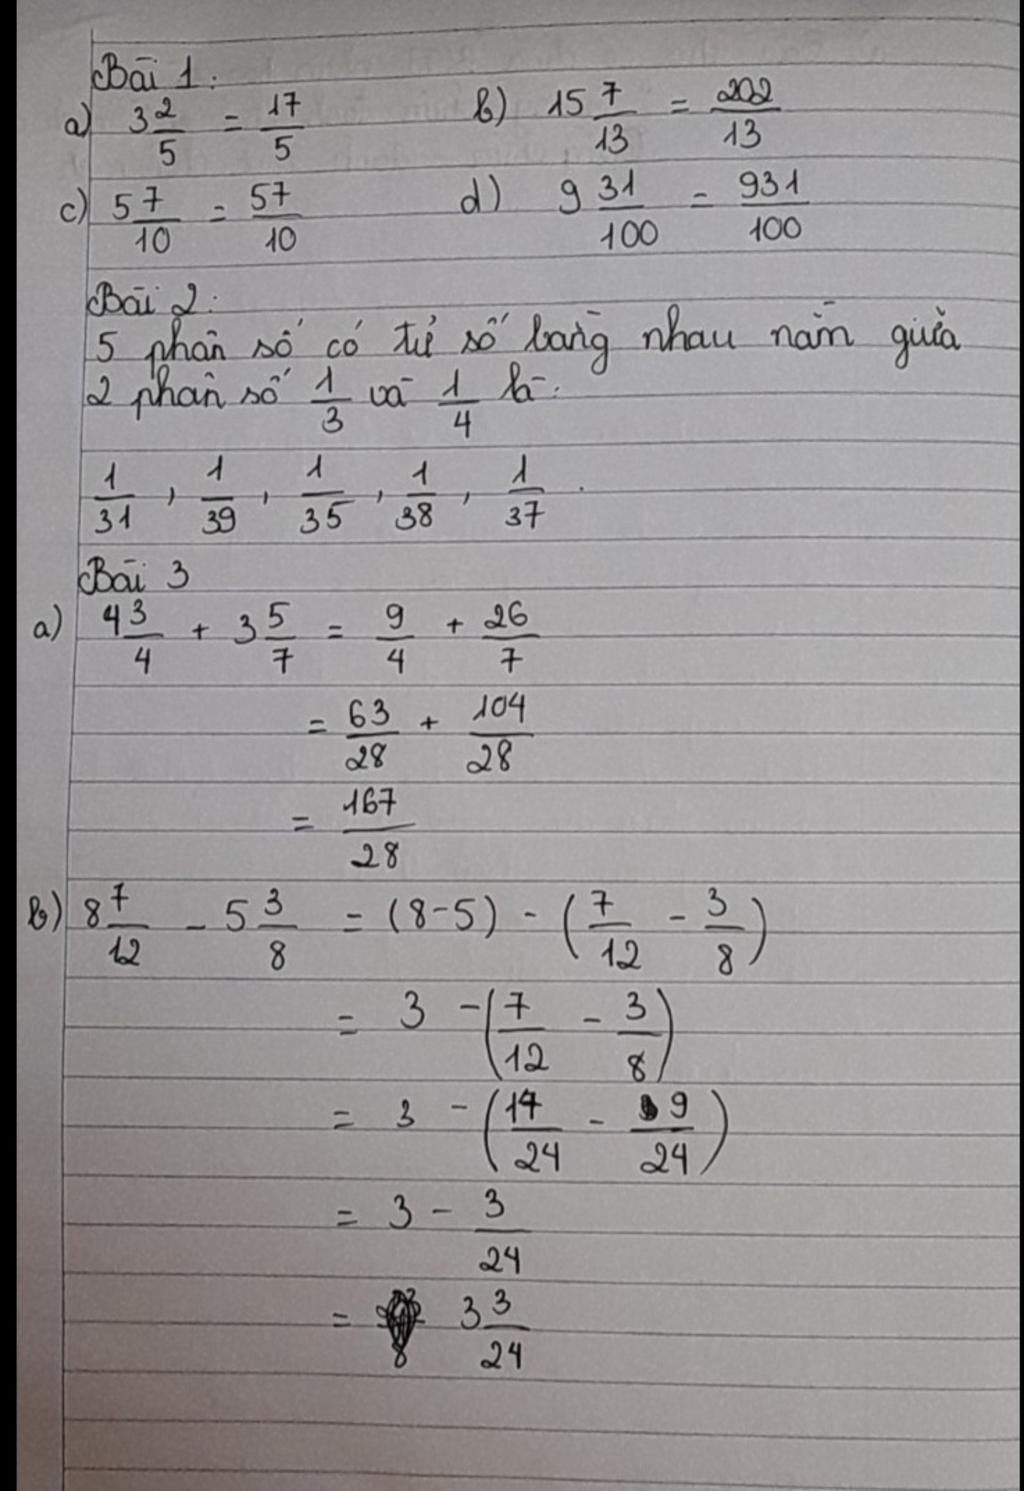 Bài 1:
a) 3 2/5 = 17/5 b) 15 7/13 = 202/13
c) 5 7/10 = 57/10 d) 9 31/100 = 931/100
Bài 2:
5 phân số có tử số bằng nhau nằm giữa
2 phân số 1/3 và 1/4 là:
1/31, 1/39, 1/35, 1/38, 1/37.
Bài 3
a) 4 3/4 + 3 5/7 = 9/4 + 26/7
= 63/28 + 104/28
= 167/28
b) 8 7/12 - 5 3/8 = (8-5) - (7/12 - 3/8)
= 3 - (7/12 - 3/8)
= 3 - (14/24 - 9/24)
= 3 - 3/24
= 3 3/24